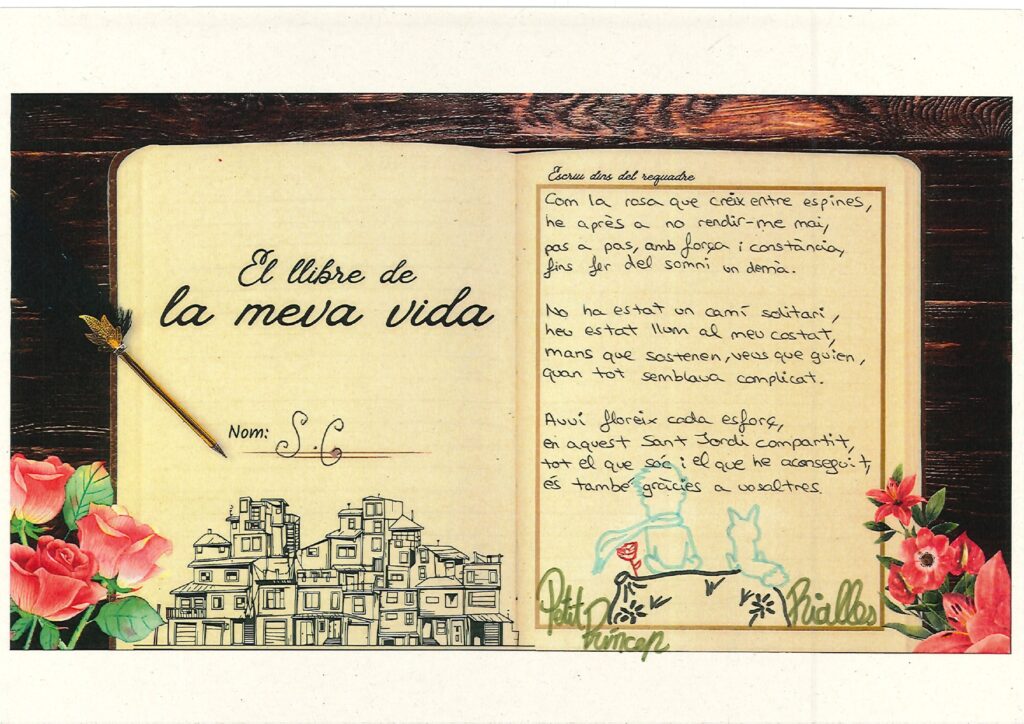 El llibre de
la meva vida
Nom: S.C
Escriu dins del requadre
Com la rosa que creix entre espines,
he après a no rendir-me mai,
pas a pas, amb força i constància,
fins fer del somni un demà.
No ha estat un camí solitari,
heu estat llum al meu costat,
mans que sostenen, veus que guien,
quan tot semblava complicat.
Avui floreix cada esforç,
en aquest Sant Jordi compartit,
tot el que sóc i el que he aconseguit,
és també gràcies a vosaltres.
Petit
Príncep
Rialles